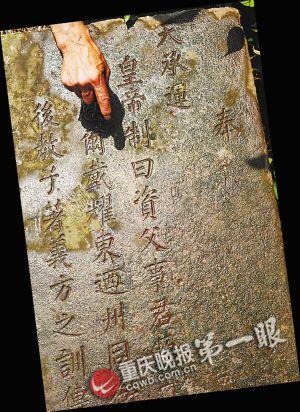 奉
天承運
皇帝制曰資父事君
爾戴耀東迺州同
後教子著義方之訓
重庆晚报 第一眼
cqwb.com.cn